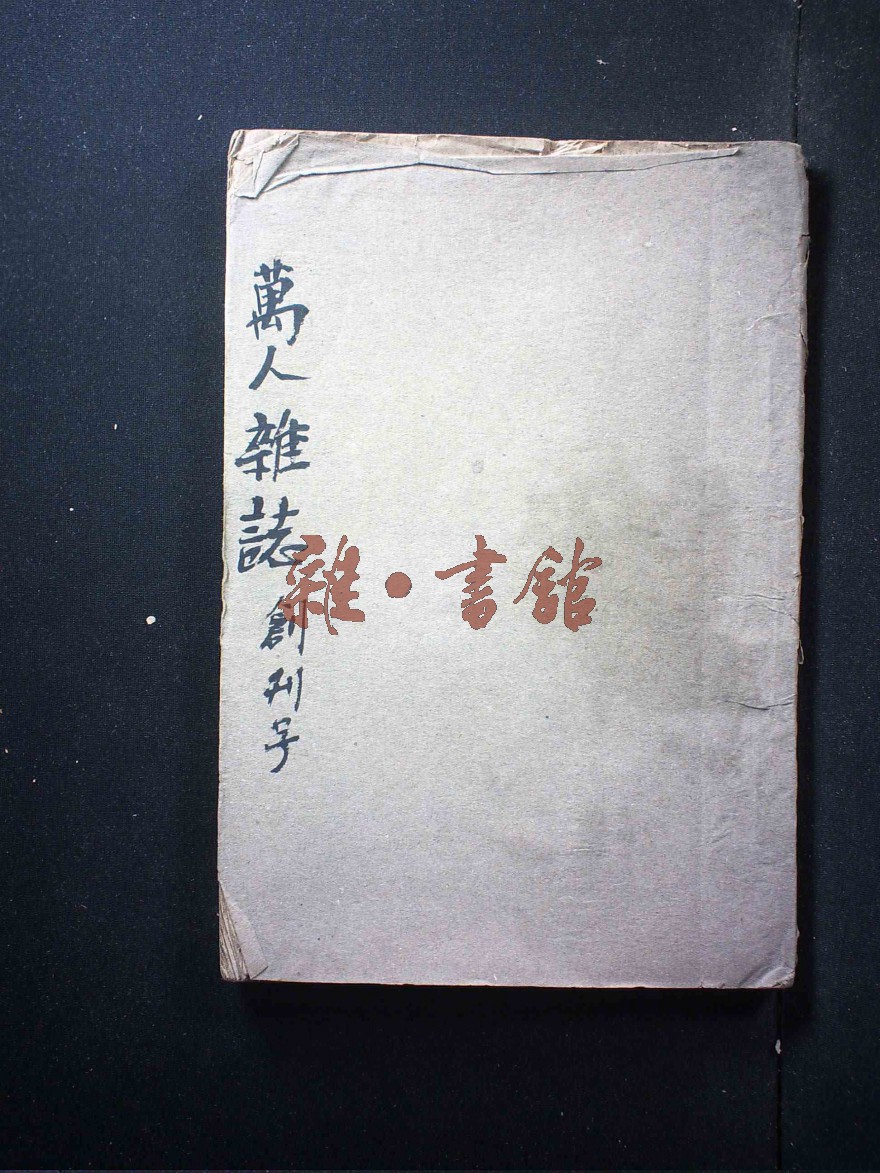 萬人雜誌創刊号
雜·書館